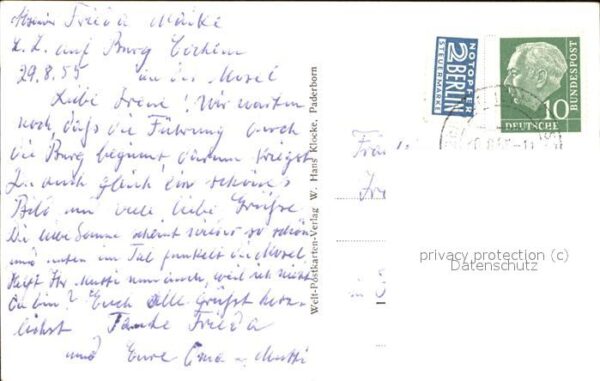 Frieda
z. Z. auf Burg Cochem
29.8.55 an der Mosel
Liebe Irene! Wir warten
noch, daß die Führung durch
die Burg beginnt, darum kriegst
Du auch gleich ein schönes
Bild mit viele liebe Grüße.
Die liebe Sonne scheint wieder so schön
und unten im Tal funkelt die Mosel.
Helft Ihr Mutti nun auch, weil ich nicht
da bin? Euch alle grüßt herz-
lichst Tante Frieda
und Eure Oma u. Mutti
Welt-Postkarten-Verlag W. Hans Klocke, Paderborn
NOTOPFER
2 BERLIN
STEUERMARKE
DEUTSCHE
BUNDESPOST
10
privacy protection (c)
Datenschutz